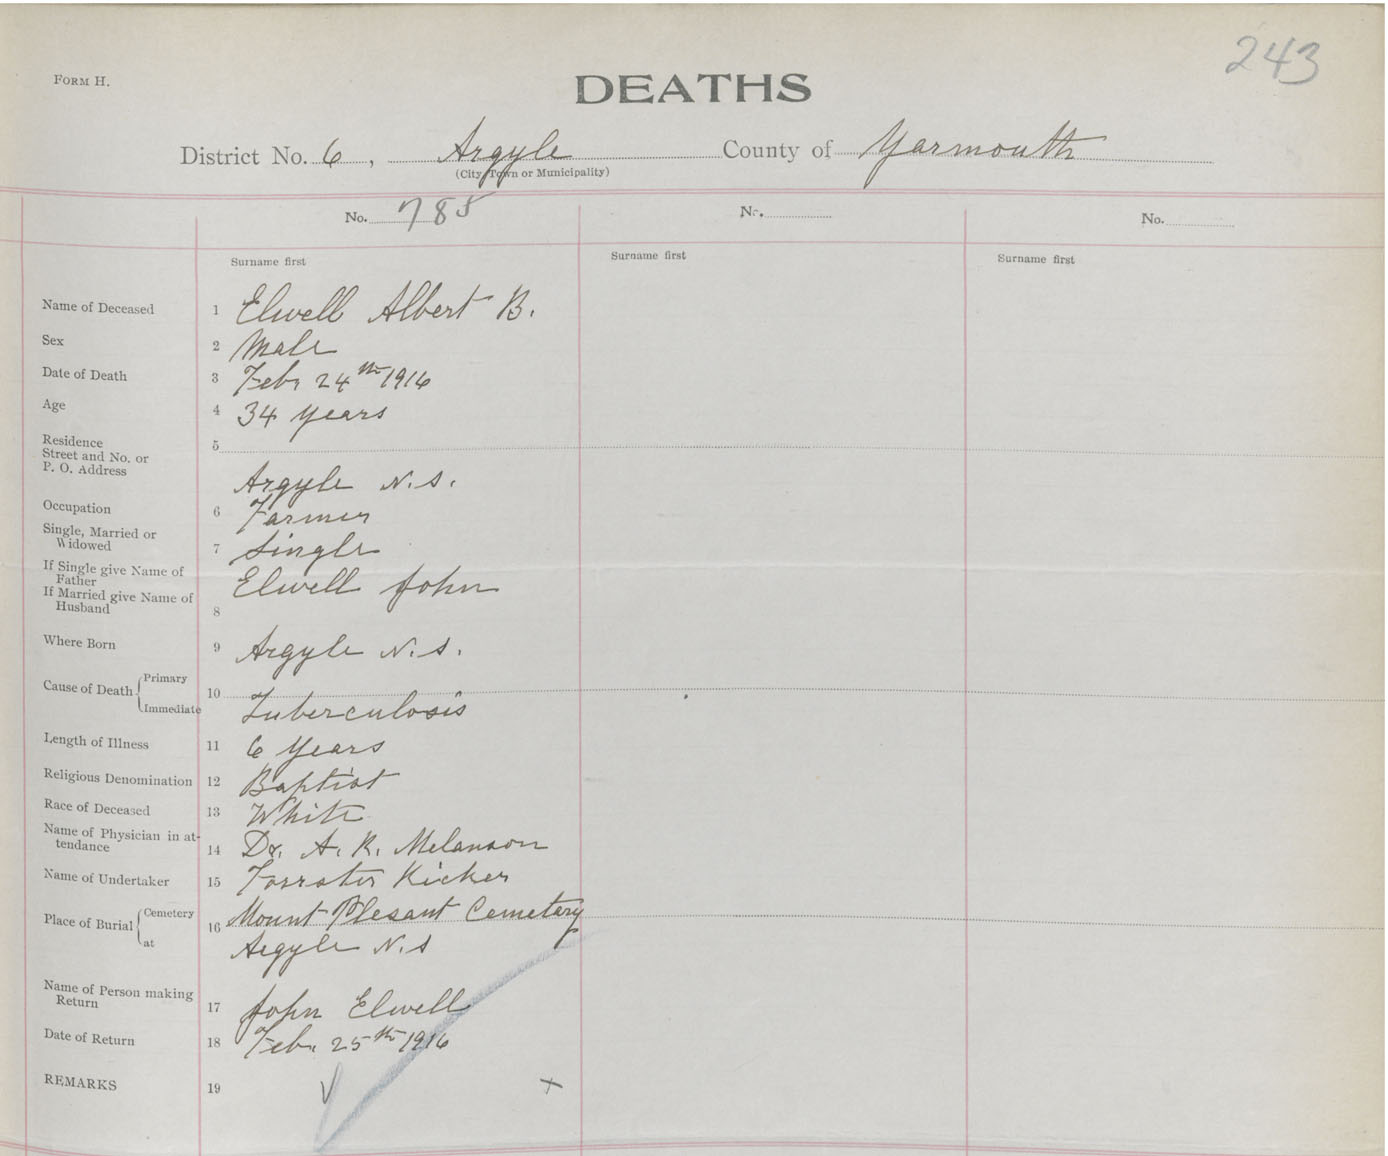 243
Form H.
DEATHS
District No. 6, Argyle County of Yarmouth
(City, Town or Municipality)
No. 785 No. No.
Surname first Surname first Surname first
Name of Deceased 1 Elwell Albert B.
Sex 2 Male
Date of Death 3 Feb. 24th 1916
Age 4 34 years
Residence 5
Street and No. or
P. O. Address
Argyle N.S.
Occupation 6 Farmer
Single, Married or
Widowed 7 Single
If Single give Name of
Father Elwell John
If Married give Name of
Husband 8
Where Born 9 Argyle N.S.
Cause of Death Primary 10
Immediate Tuberculosis
Length of Illness 11 6 years
Religious Denomination 12 Baptist
Race of Deceased 13 White
Name of Physician in at-
tendance 14 Dr. A. R. Melanson
Name of Undertaker 15 Forrster Kicker
Place of Burial Cemetery 16 Mount Plesant Cemetary
at Argyle N.S
Name of Person making
Return 17 John Elwell
Date of Return 18 Feb. 25th 1916
REMARKS 19